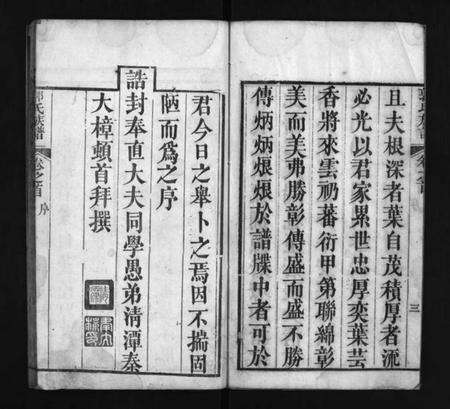 且夫根深者葉自茂積厚者流
必光以君家累世忠厚奕葉芸
香將來雲礽蕃衍甲第聯綿彰
美而美弗勝彰傳盛而盛不勝
傳炳炳烺烺於譜牒中者可於
三
君今日之舉卜之焉因不揣固
陋而為之序
誥封奉直大夫同學愚弟清潭秦
大樟頓首拜撰
氏族譜
卷之首 序